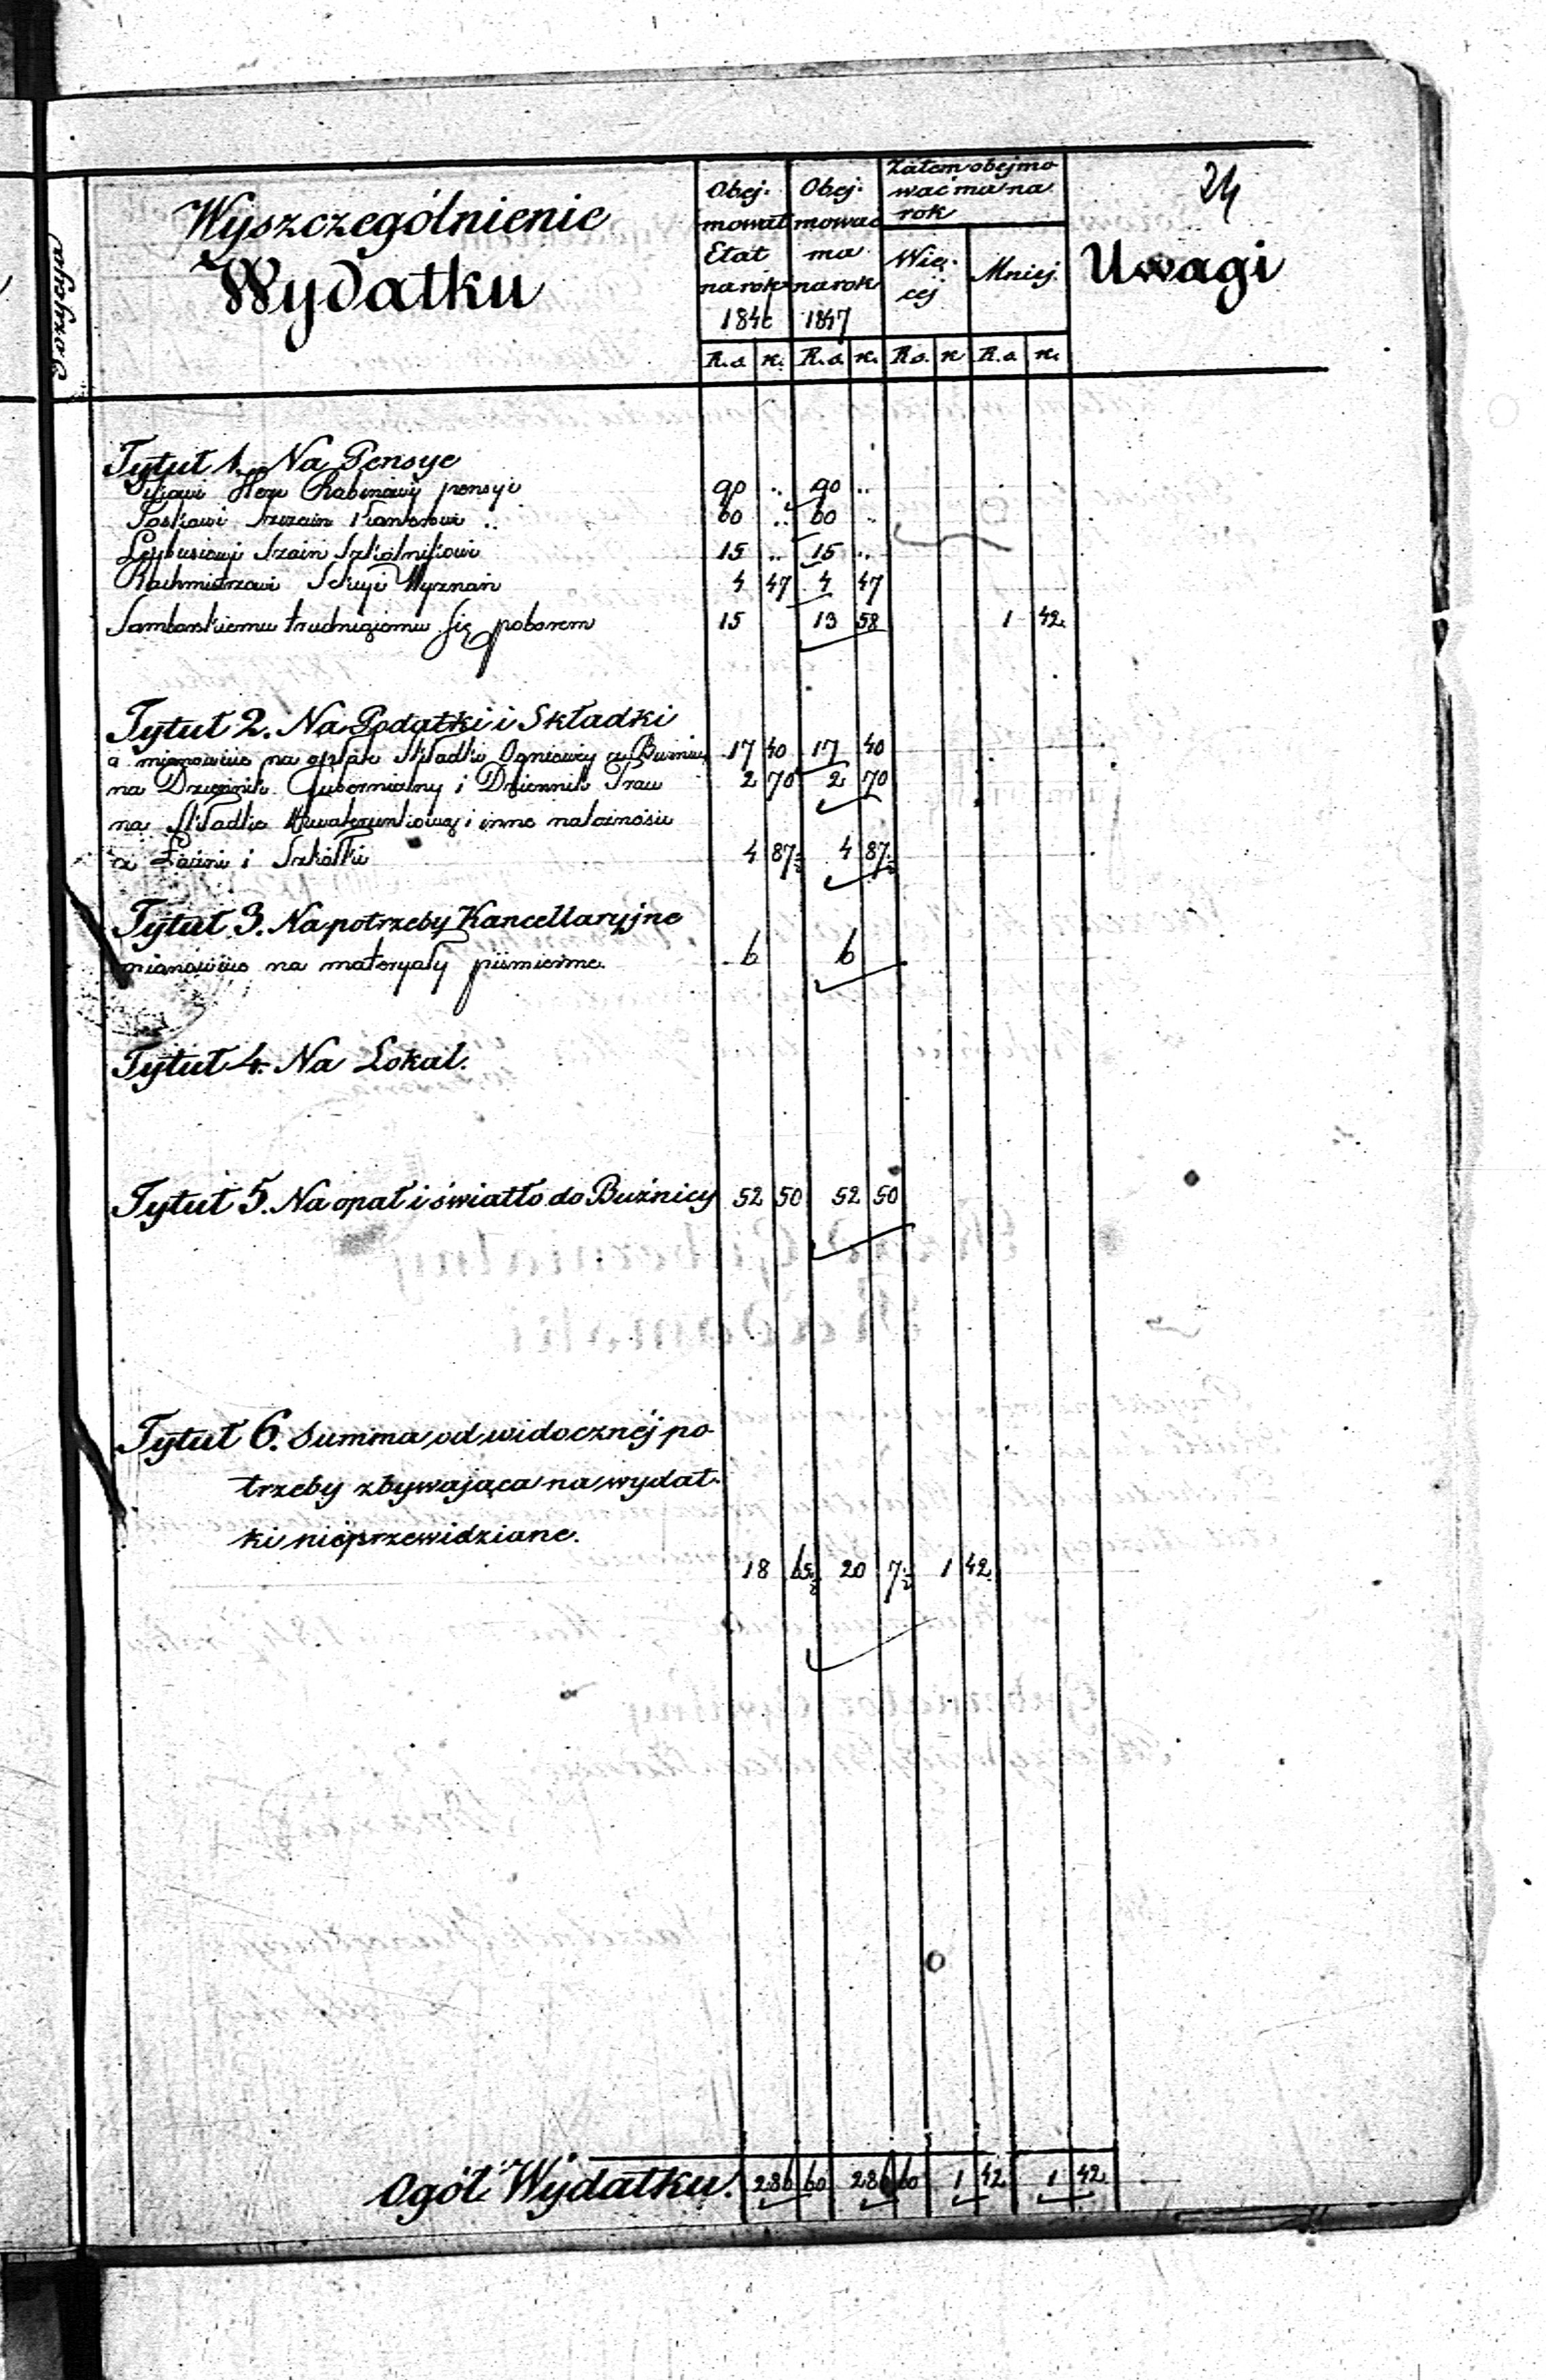 24
Pozycya
Wyszczególnienie
Wydatku
Obej-
mował
Etat
na rok
1846
Obej-
mować
ma
na rok
1847
Zatem obejmo
wać ma na
rok
Wię-
cej
Mniej.
Uwagi
R.s. k. R.s. k. R.s. k R.s. k.
Tytuł 1. Na Pensye
Herz Rabinowi pensyi 90 .. 90 ..
Kantorowi .. 60 .. 60 ..
Leybusiowi Szkolnikowi 15 .. 15 ..
Rachmistrzowi Sekcyi Wyznań 4 47 4 47
Samborskiemu trudniącemu się poborem 15 13 58 1 42.
Tytuł 2. Na Podatki i Składki
a mianowicie na opłatę Składki Ogniowey z Bużnicy 17 40 17 40
na Dziennik Gubernialny i Dziennik Praw 2 70 2 70
na Składkę Kwaterunkową i inne należności
z Łaźni i Szkółki 4 87½ 4 87½
Tytuł 3. Na potrzeby Kancellaryjne
mianowicie na materyały piśmienne. 6 6
Tytuł 4. Na Lokal.
Tytuł 5. Na opał i światło do Bużnicy 52 50 52 50
Tytuł 6. Summa od widocznéj po
trzeby zbywająca na wydat-
ki nieprzewidziane.
18 65½ 20 7½ 1 42.
Ogół Wydatku. 286 60 286 60 1 42 1 42.